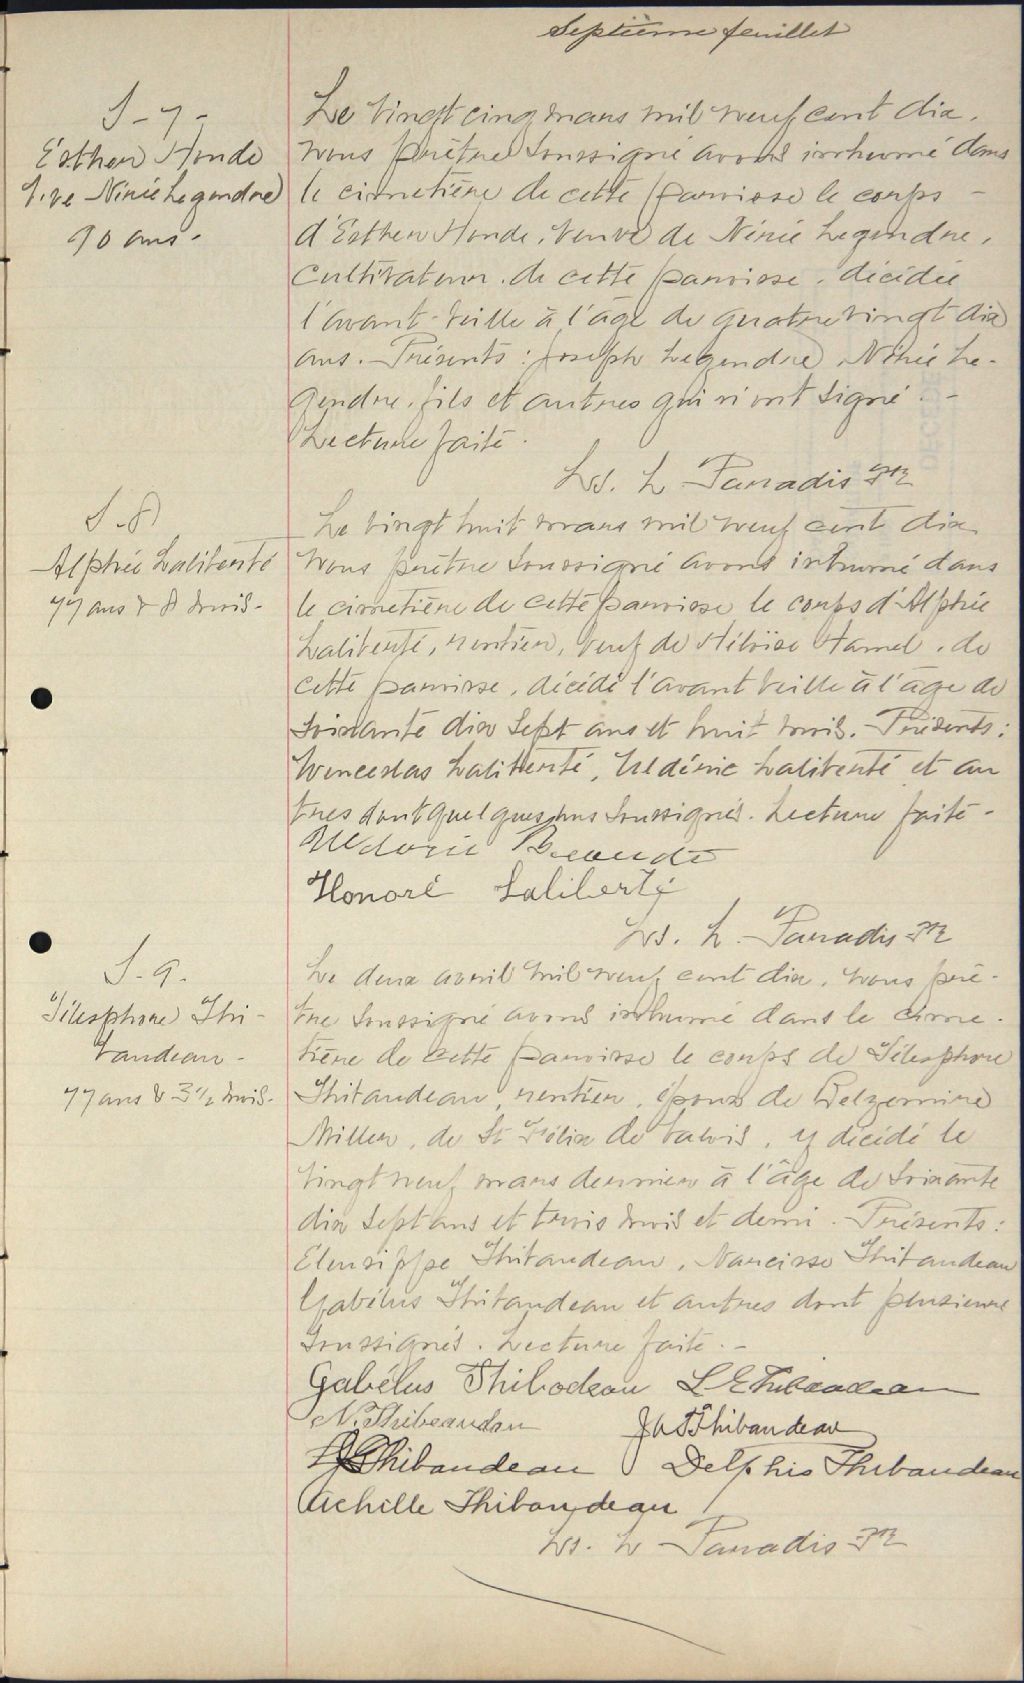 Septième feuillet
S-7-
Esther Houde
Vve Nérée Legendre
90 ans.
Le vingt cinq mars mil neuf cent dix,
nous prêtre soussigné avons inhumé dans
le cimetière de cette paroisse le corps -
d'Esther Houde, veuve de Nérée Legendre,
cultivateur, de cette paroisse, décédée
l'avant-veille à l'âge de quatre vingt dix
ans. - Présents : Joseph Legendre, Nérée Le-
gendre, fils et autres qui n'ont signé. -
Lecture faite.
Ls. L. Paradis Ptr
S-8
Alphée Laliberté
77 ans & 8 mois-
Le vingt huit mars mil neuf cent dix
nous prêtre soussigné avons inhumé dans
le cimetière de cette paroisse le corps d'Alphée
Laliberté, rentier, veuf de Héloïse Hamel, de
cette paroisse, décédé l'avant veille à l'âge de
soixante dix sept ans et huit mois. - Présents :
Wenceslas Laliberté, Médéric Laliberté et au
tres dont quelques uns soussignés. Lecture faite -
Honoré Laliberté
Ls. L. Paradis Ptr
S-9.
Télesphore Thi-
baudeau -
77 ans & 3½ mois-
Le deux avril mil neuf cent dix, nous prê-
tre soussigné avons inhumé dans le cime-
tière de cette paroisse le corps de Télesphore
Thibaudeau, rentier, époux de Belzemire
Miller, de St Félix de Valois, y décédé le
vingt neuf mars dernier à l'âge de soixante
dix sept ans et trois mois et demi. - Présents :
Eleusippe Thibaudeau, Narcisse Thibaudeau
Gabélus Thibaudeau et autres dont plusieurs
soussignés. Lecture faite. -
Gabélus Thibodeau L E Thibaudeau
N. Thibeaudau Jos T Thibaudeau
Thibaudeau Delphis Thibaudeau
Achille Thibaudeau
Ls. L. Paradis Ptr